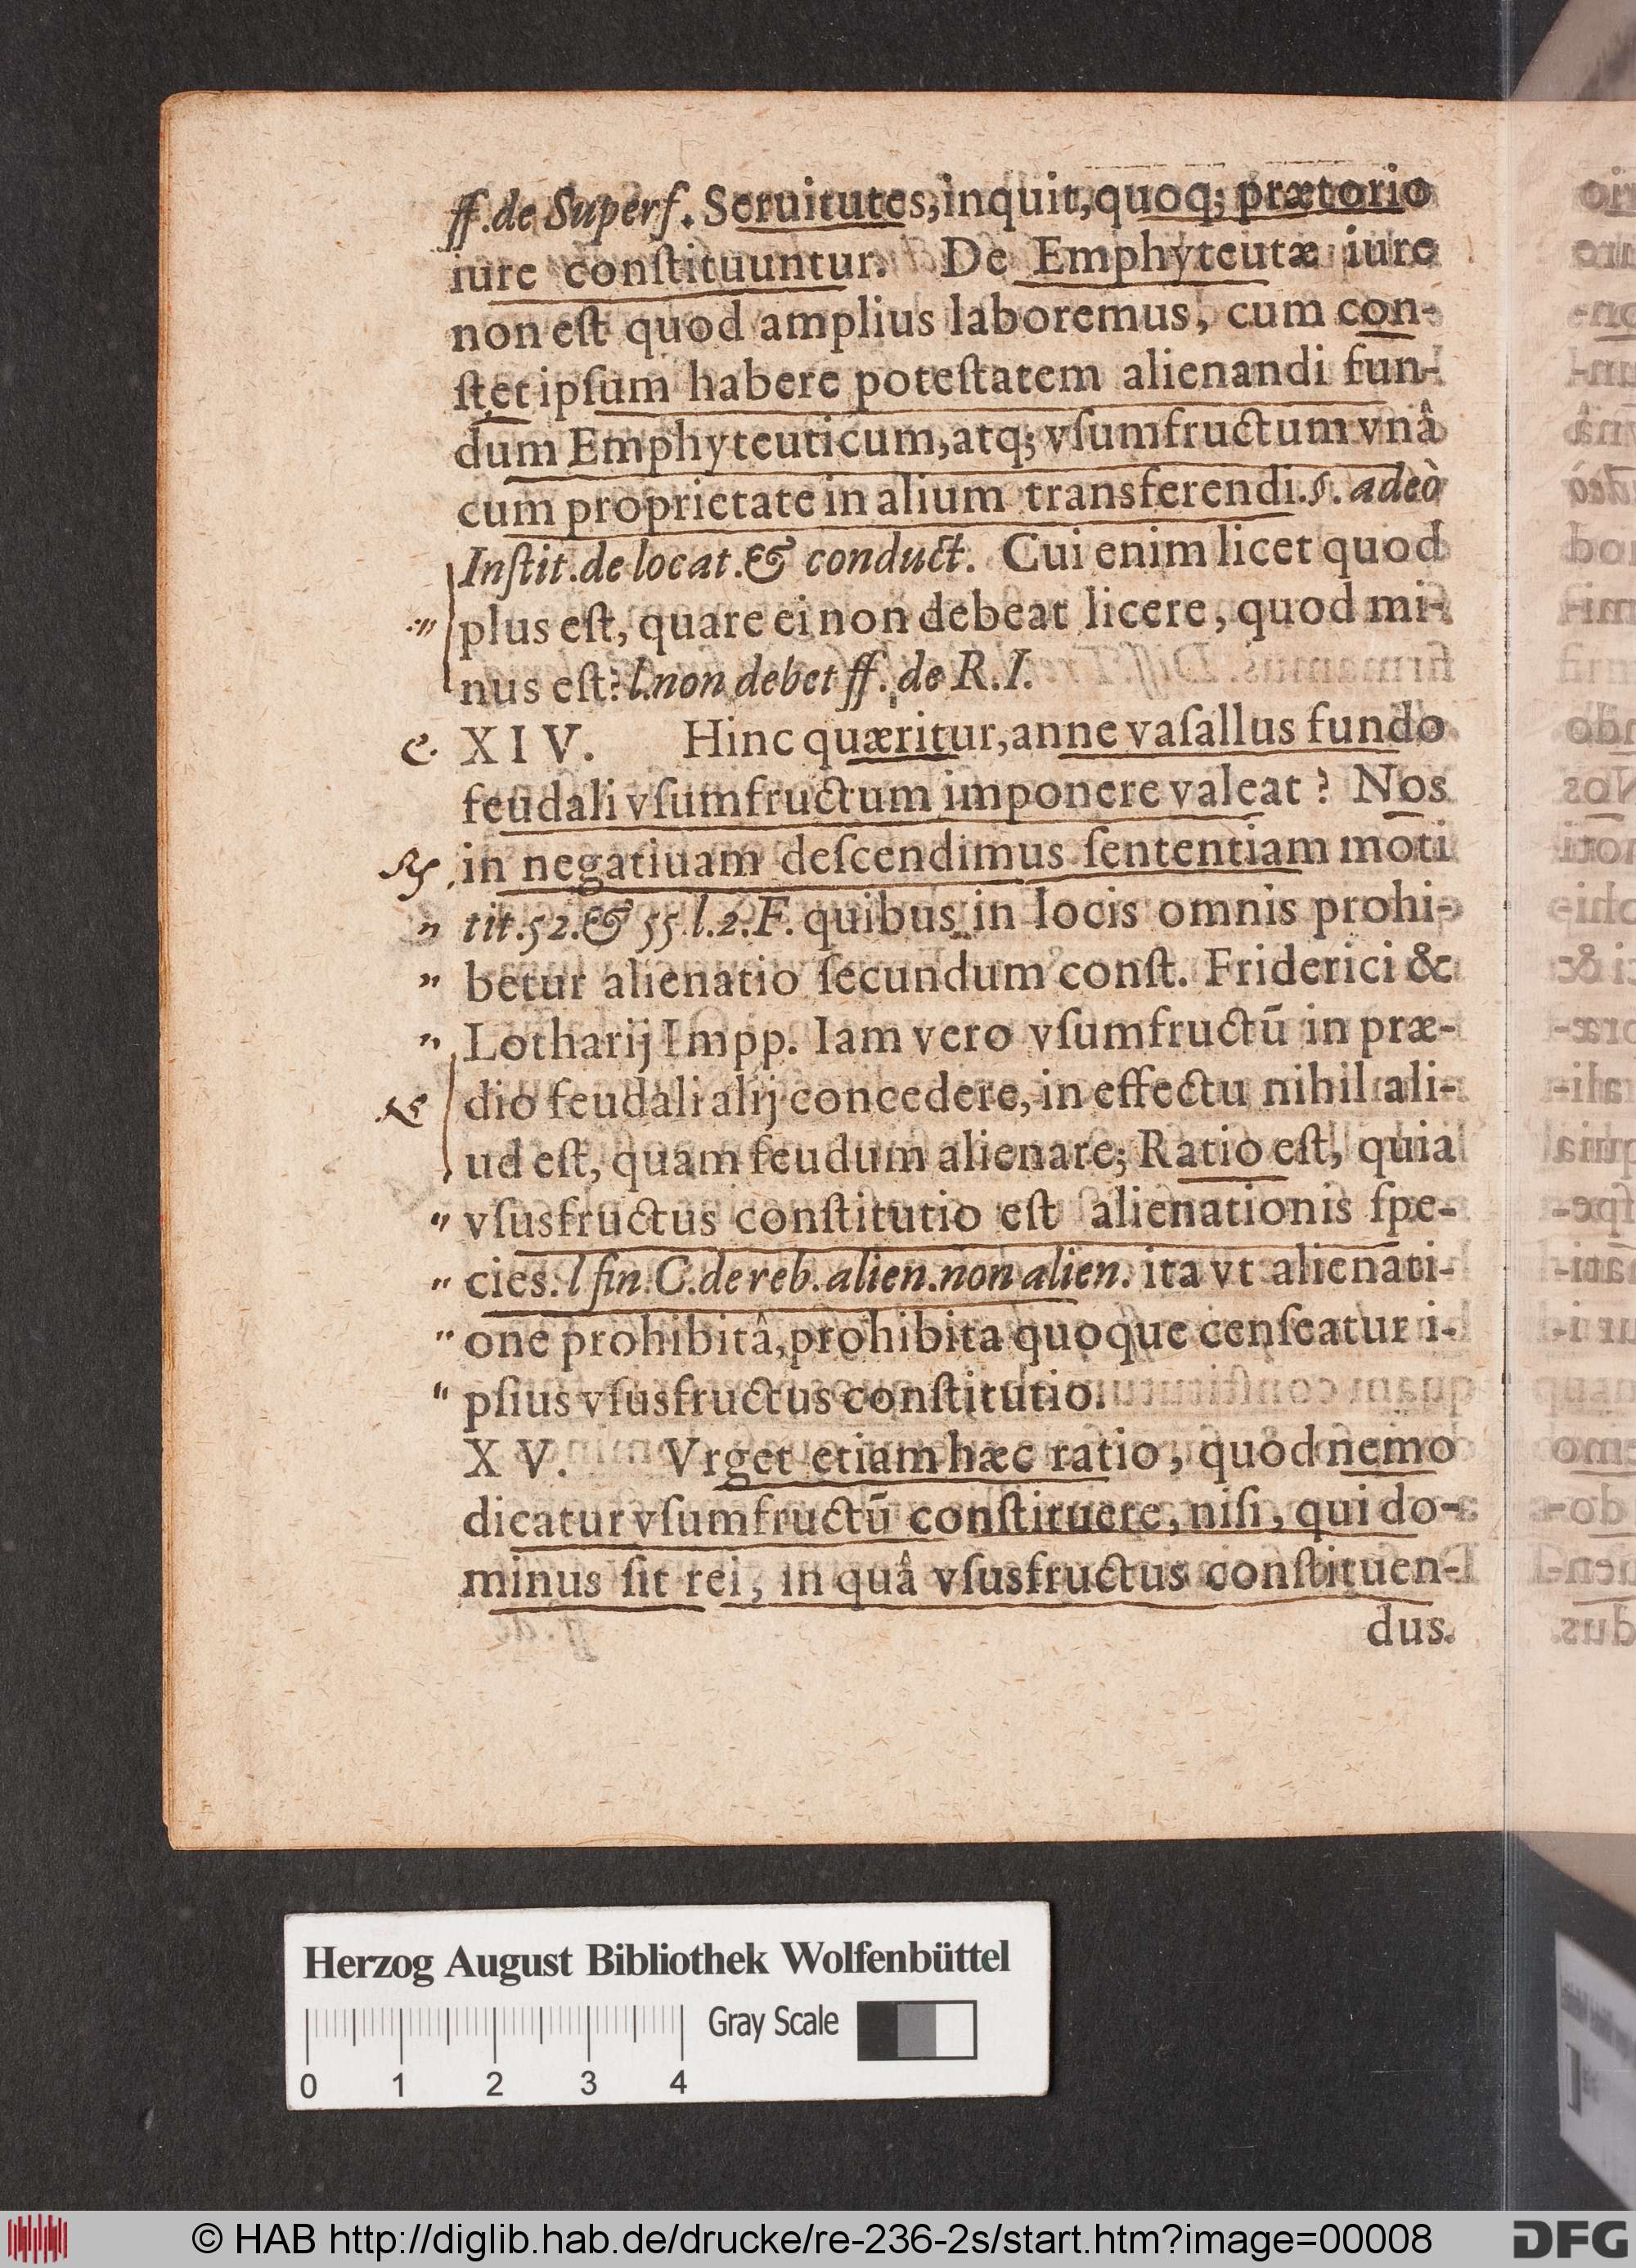 ff. de Superf. Seruitutes, inquit, quoq; prætorio
iure conſtituuntur. De Emphyteutæ iure
non eſt quod amplius laboremus, cum con-
ſtet ipſum habere poteſtatem alienandi fun-
dum Emphyteuticum, atq; vſumfructum vnâ
cum proprietate in alium transferendi. §. adeò
Inſtit. de locat. & conduct. Cui enim licet quod
plus eſt, quare ei non debeat licere, quod mi-
nus eſt? l. non debet ff. de R. I.
XIV. Hinc quæritur, anne vaſallus fundo
feudali vſumfructum imponere valeat? Nos
in negatiuam deſcendimus ſententiam moti
tit. 52. & 55 l. 2. F. quibus in locis omnis prohi-
betur alienatio ſecundum conſt. Friderici &
Lotharij Impp. Iam vero vſumfructū in præ-
dio feudali alij concedere, in effectu nihil ali-
ud eſt, quam feudum alienare; Ratio eſt, quia
vſusfructus conſtitutio eſt alienationis ſpe-
cies. l fin. C. de reb. alien. non alien. ita vt alienati-
one prohibitâ, prohibita quoque cenſeatur i-
pſius vſusfructus conſtitutio.
XV. Vrget etiam hæc ratio, quod nemo
dicatur vſumfructū conſtituere, niſi, qui do-
minus ſit rei, in quâ vſusfructus conſtituen-
dus.
Herzog August Bibliothek Wolfenbüttel
Gray Scale
0 1 2 3 4
© HAB http://diglib.hab.de/drucke/re-236-2s/start.htm?image=00008
DFG